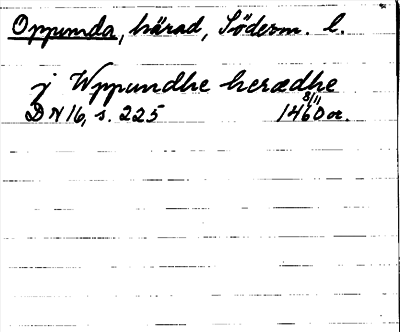 Oppunda, härad, Söderm. l.
j Wppundhe herædhe
DN 16, s. 225 1460 8/11 or.